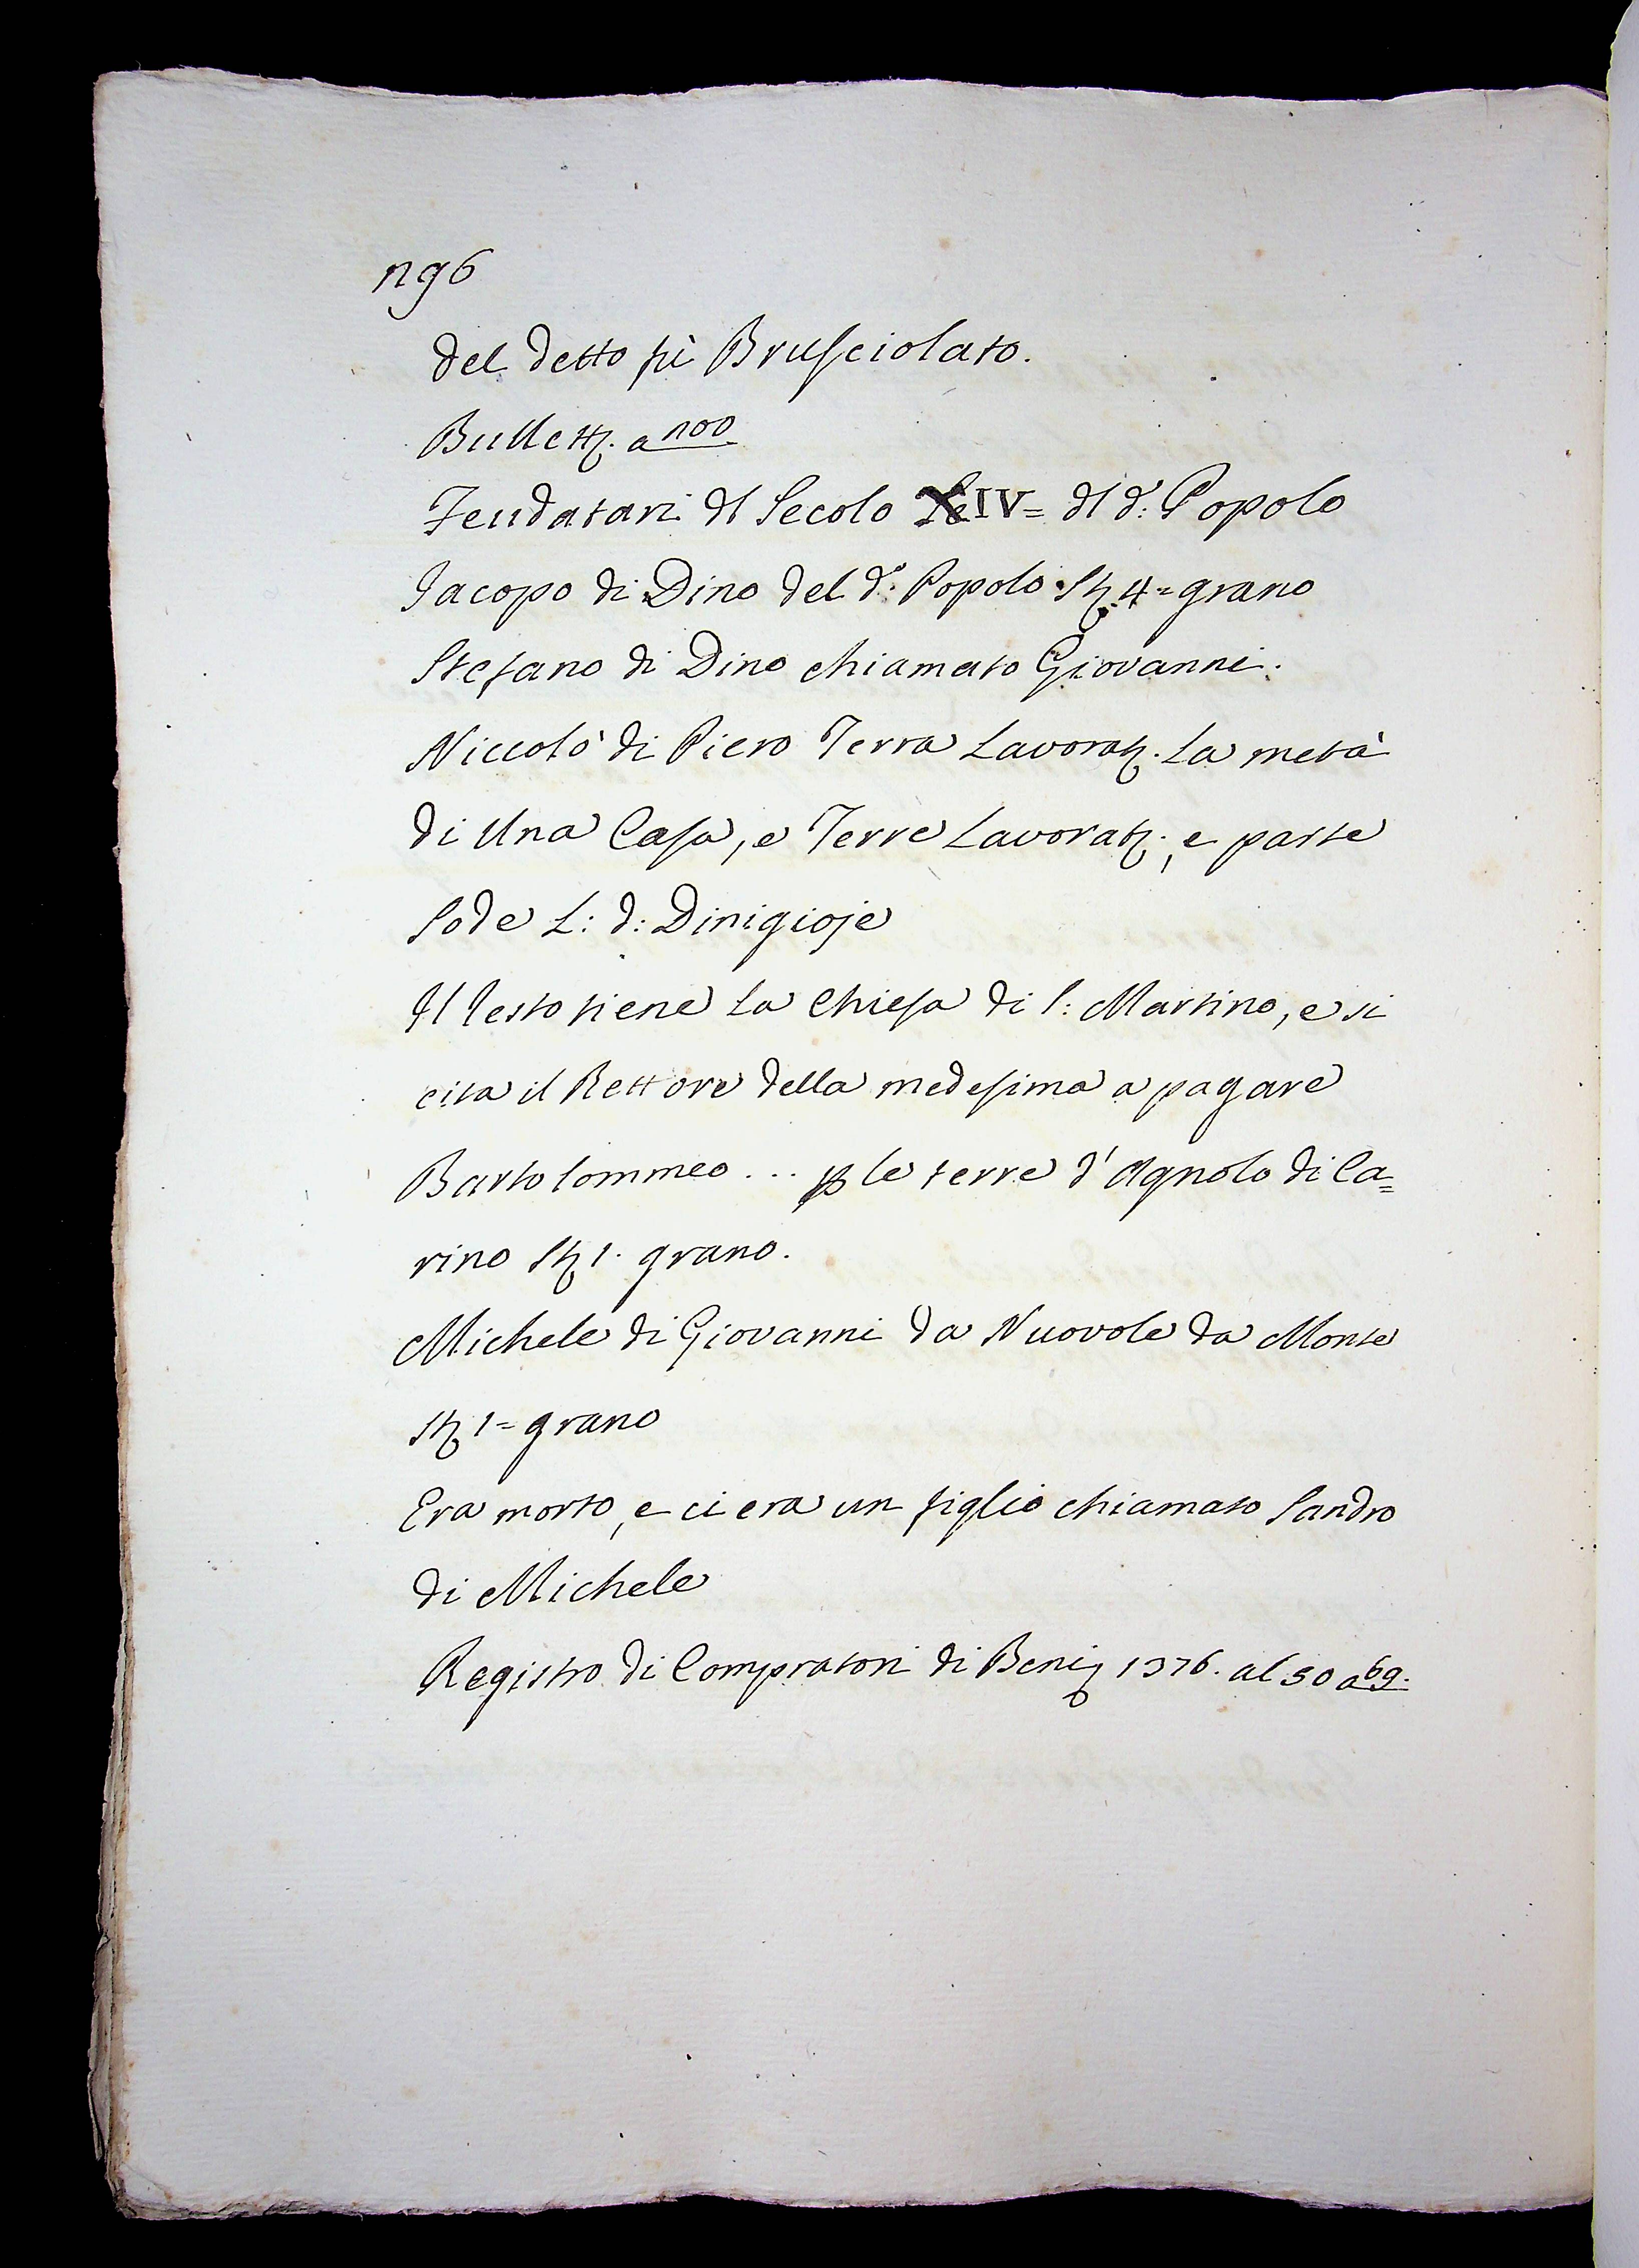 196
del detto fù Brusciolato.
Bullett. a 100
Feudatari dl Secolo XIV= dl d.º Popolo
Jacopo di Dino del d.º Popolo St. 4= grano
Stefano di Dino chiamato Giovanni.
Niccolò di Piero Terra Lavorat. La metà
di Una Casa, e Terre Lavorat., e parte
Sode L: d: Dinigioje
Il resto tiene La Chiesa di S: Martino, e si
cita il Rettore della medesima a pagare
Bartolommeo ... ꝑ le terre d'Agnolo di Ca=
rino St. 1. grano.
Michele di Giovanni da Nuovole da Monte
St. 1= grano
Era morto, e ci era un figlio chiamato Sandro
di Michele
Registro di Compratori di Beni 1376. al 50 a 69.